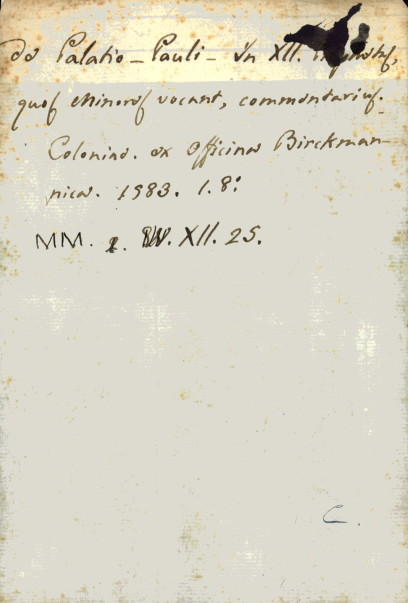 de Palatio - Pauli - In XII. Prophetas,
quos Minores vocant, commentarius.
Coloniae. ex Officina Birckman-
nica. 1583. 1. 8º
MM. 1. IV. XII. 25.
C.